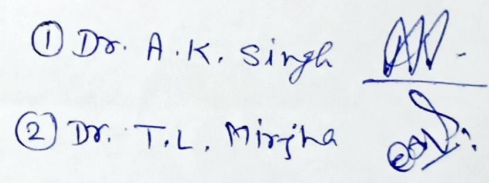 ① Dr. A.K. Singh
② Dr. T.L. Mirjha